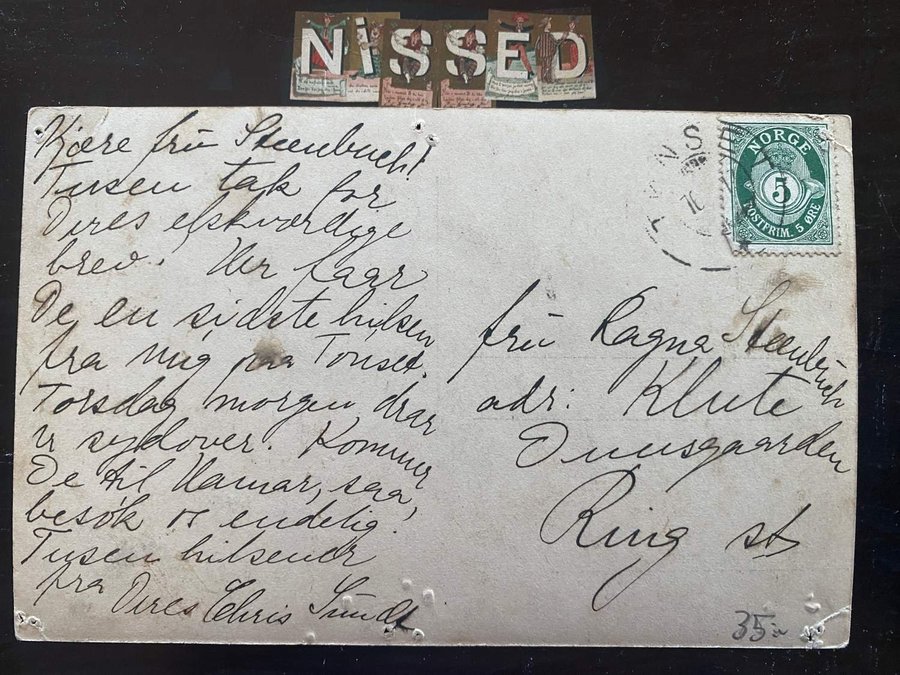 NISSED
Kjære frü Steenbuch!
Tusen tak for
Deres elskværdige
brev. Her faar
De en sidste hilsen
fra mig paa Tonset.
Torsdag morgen drar
vi sydover. Kommer
De til Hamar, saa,
besøk os endelig!
Tusen hilsener
fra
Deres Chris Sündt
NORGE
5
POSTFRIM. 5 ØRE
frü Ragna Steenbuch
adr: Klüte
Ring st
35